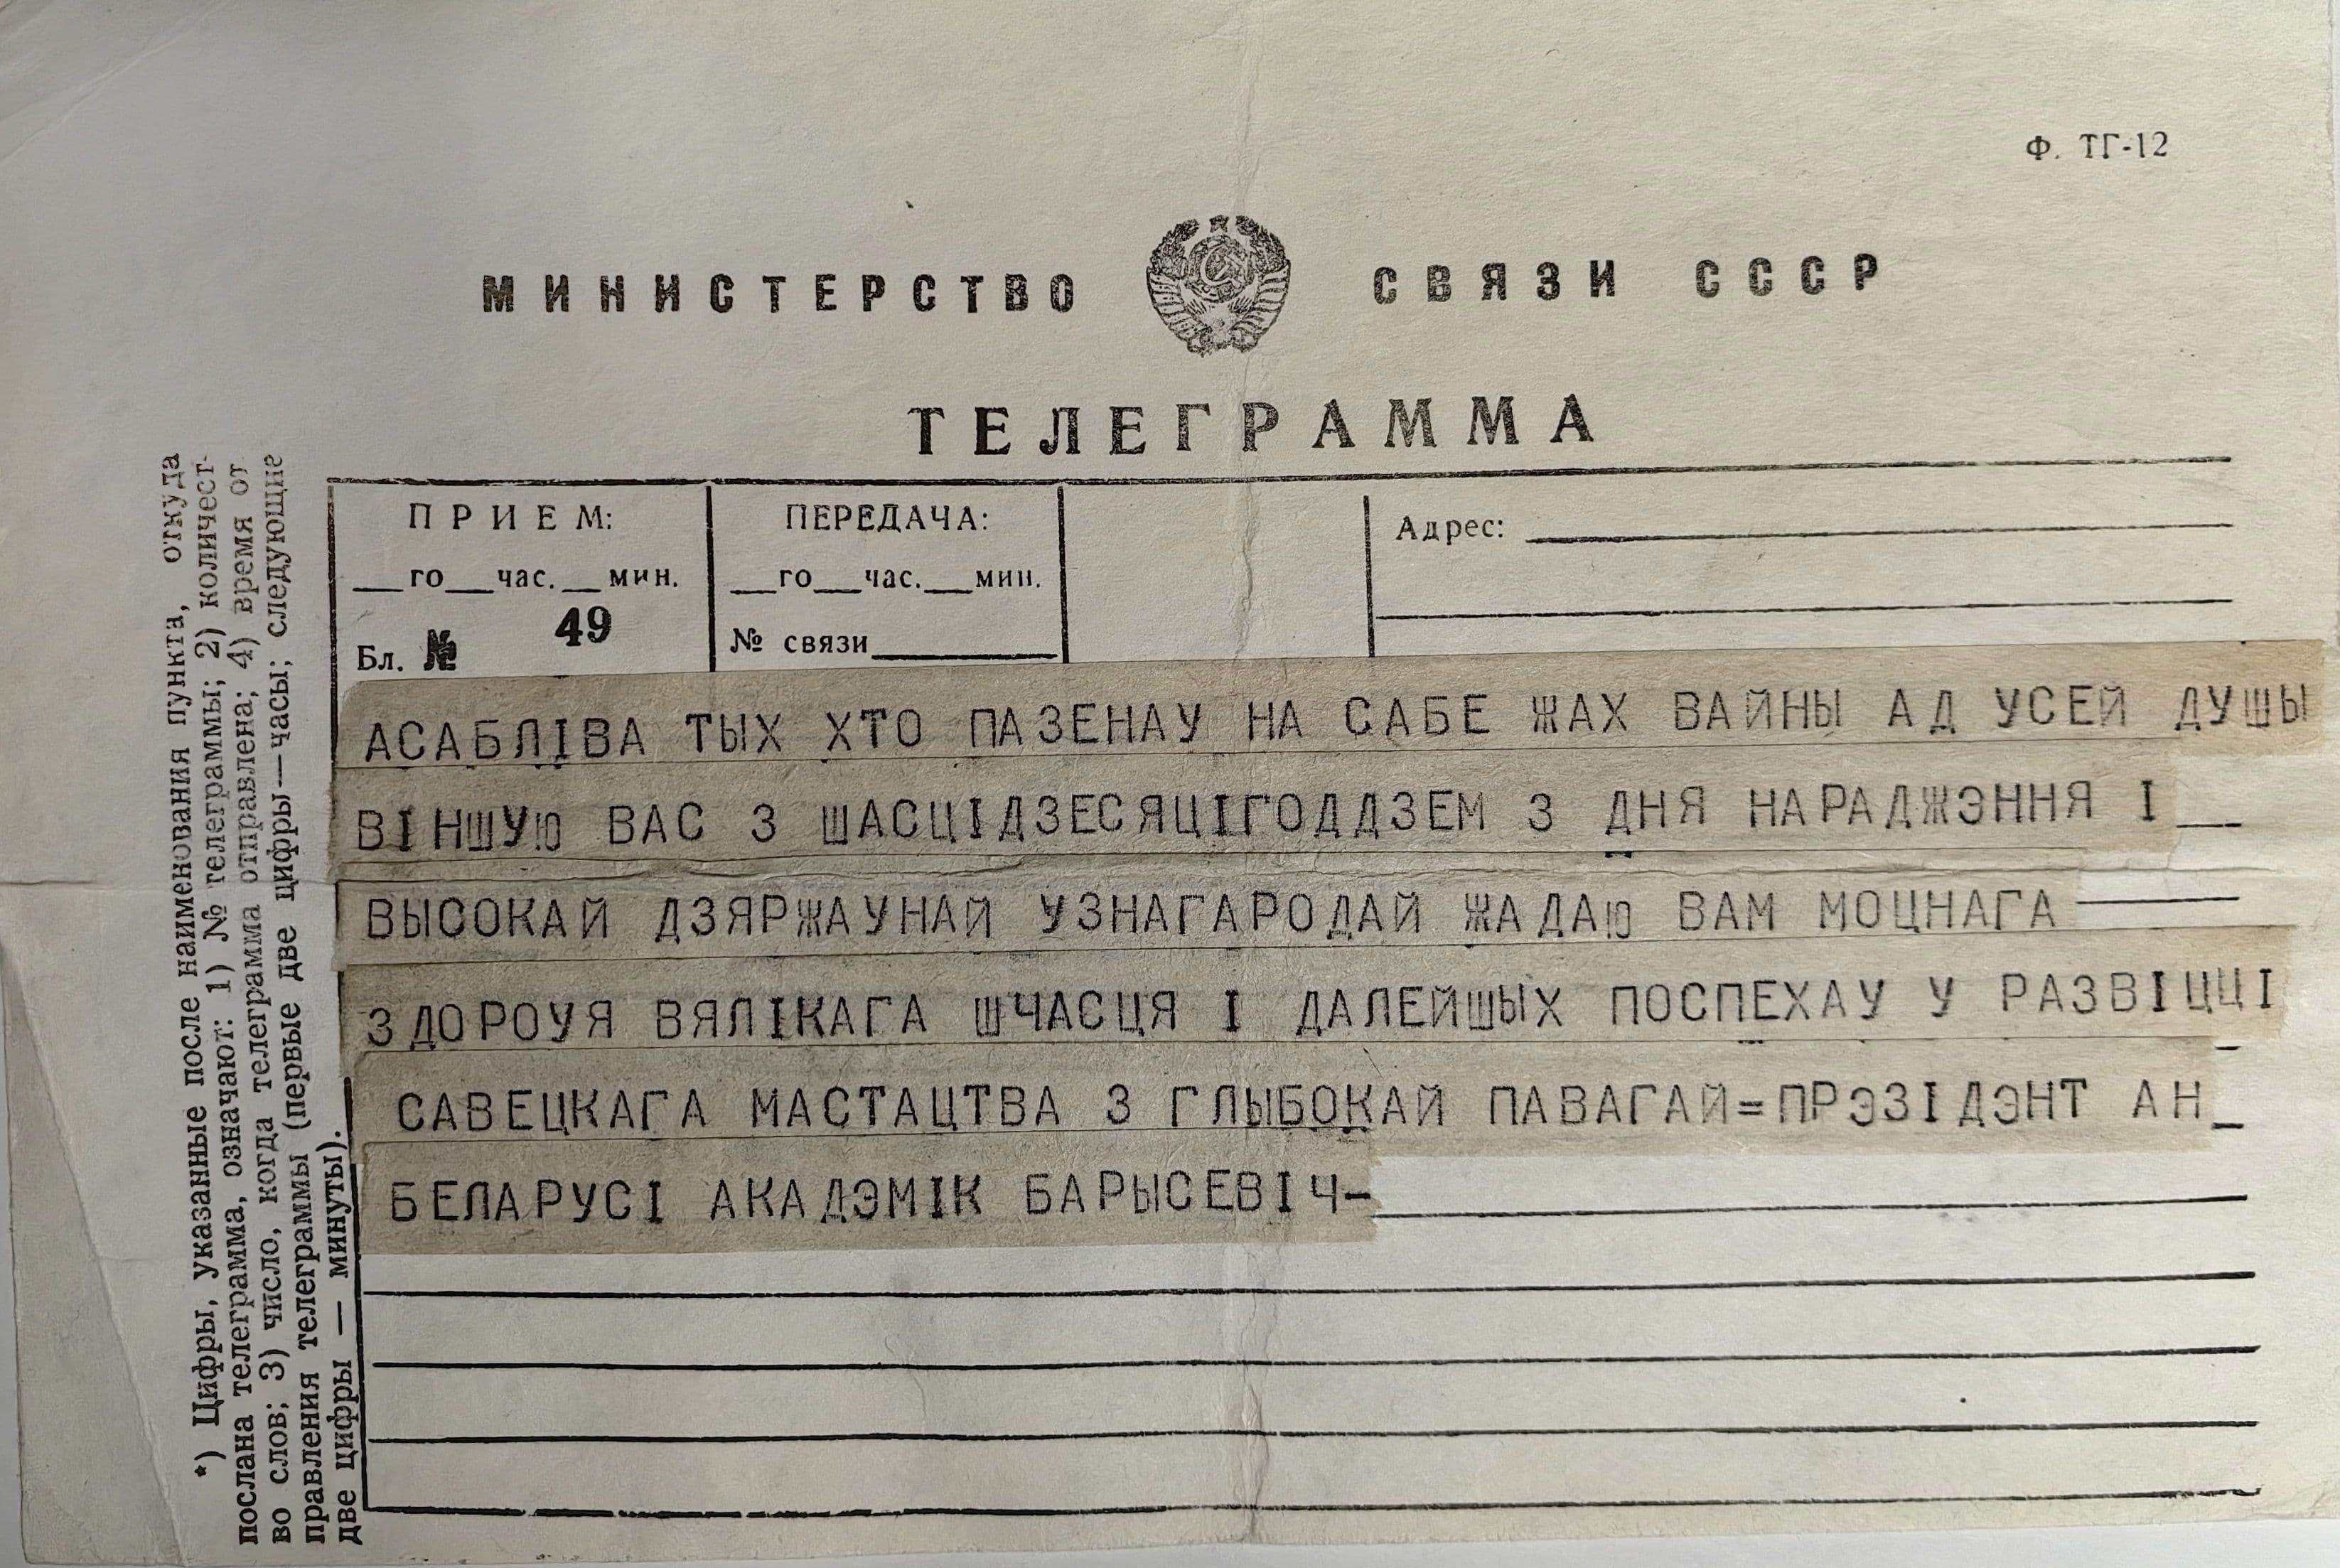 Ф. ТГ-12
МИНИСТЕРСТВО СВЯЗИ СССР
ТЕЛЕГРАММА
ПРИЕМ:
__го__час.__мин.
Бл. № 49
ПЕРЕДАЧА:
__го__час.__мин.
№ связи
Адрес:
АСАБЛІВА ТЫХ ХТО ПАЗЕНАУ НА САБЕ ЖАХ ВАЙНЫ АД УСЕЙ ДУШЫ
ВІНШУЮ ВАС З ШАСЦІДЗЕСЯЦІГОДДЗЕМ З ДНЯ НАРАДЖЭННЯ І
ВЫСОКАЙ ДЗЯРЖАУНАЙ УЗНАГАРОДАЙ ЖАДАЮ ВАМ МОЦНАГА
ЗДОРОУЯ ВЯЛІКАГА ШЧАСЦЯ І ДАЛЕЙШЫХ ПОСПЕХАУ У РАЗВІЦЦІ
САВЕЦКАГА МАСТАЦТВА З ГЛЫБОКАЙ ПАВАГАЙ=ПРЭЗІДЭНТ АН
БЕЛАРУСІ АКАДЭМІК БАРЫСЕВІЧ-
*) Цифры, указанные после наименования пункта, откуда
послана телеграмма, означают: 1) № телеграммы; 2) количест-
во слов; 3) число, когда телеграмма отправлена; 4) время от
правления телеграммы (первые две цифры—часы; следующие
две цифры — минуты).